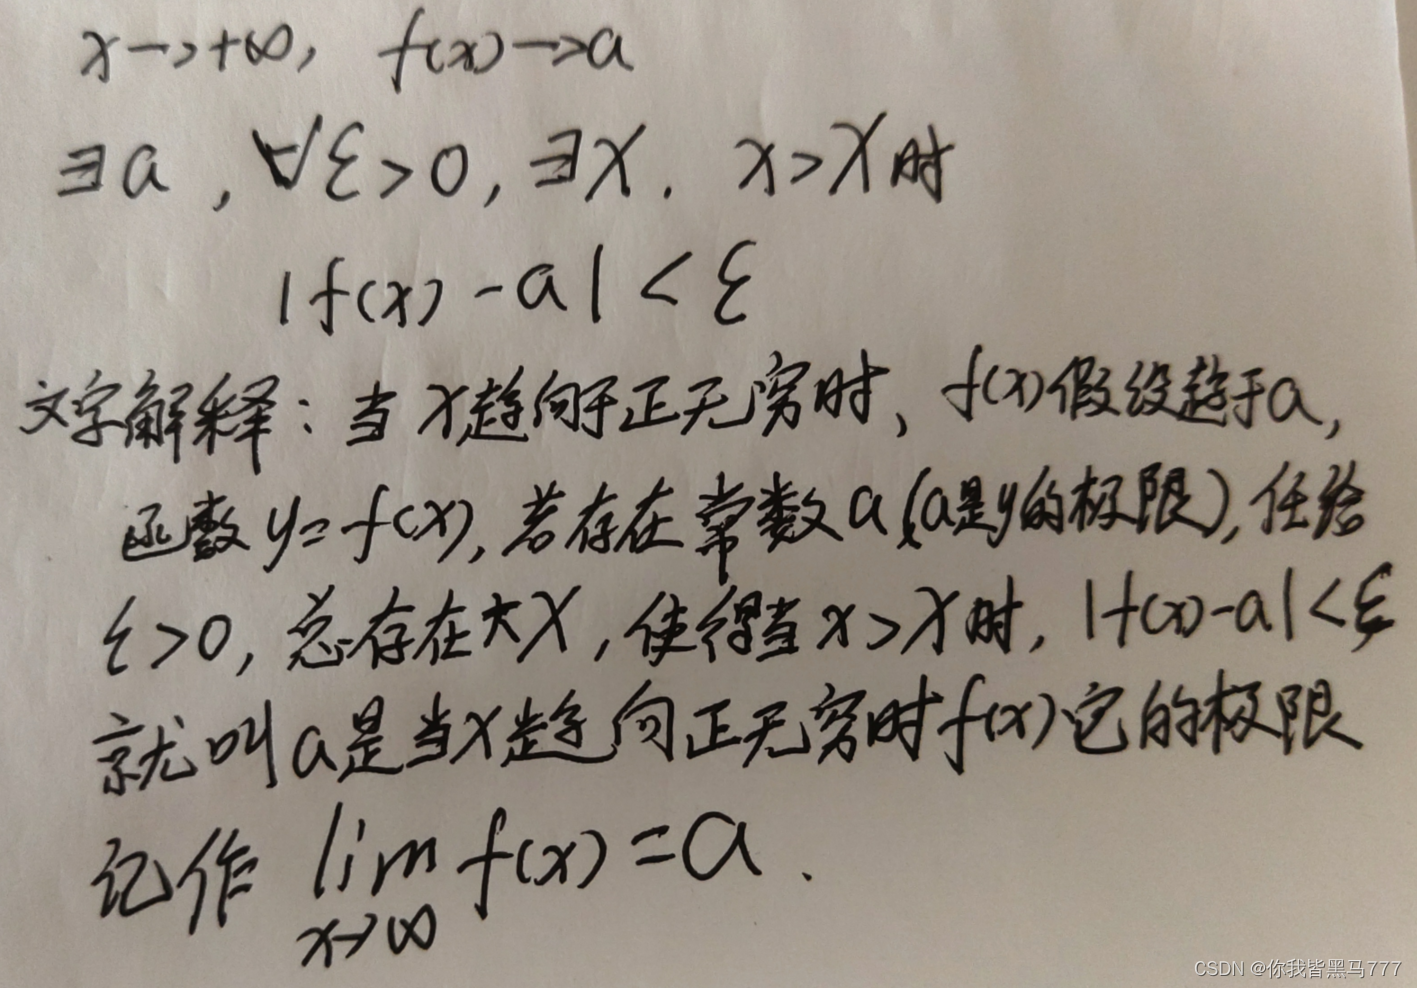 x→+∞, f(x)→a
∃a, ∀ε>0, ∃X. x>X时
|f(x)-a|<ε
文字解释：当x趋向于正无穷时, f(x)假设趋于a,
函数y=f(x), 若存在常数a(a是y的极限), 任给
ε>0, 总存在大X, 使得当x>X时, |f(x)-a|<ε
就叫a是当x趋向正无穷时f(x)它的极限
记作 lim f(x)=a.
x→∞
CSDN @你我皆黑马777